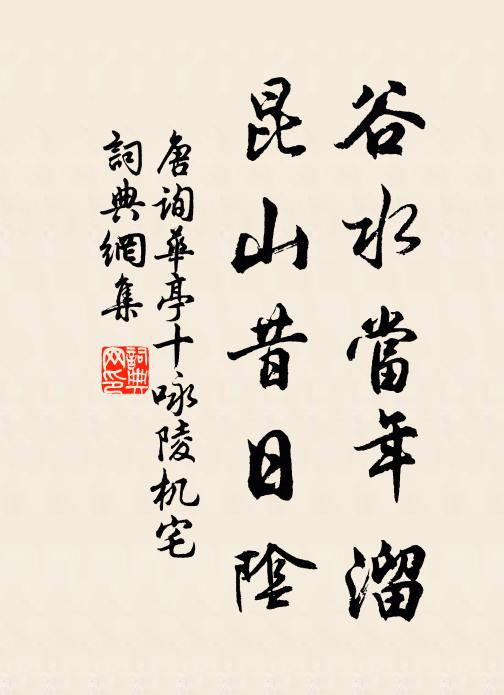 谷水當年溜
昆山昔日陰
唐詢華亭十咏陵机宅
詞典網集
詞典网印